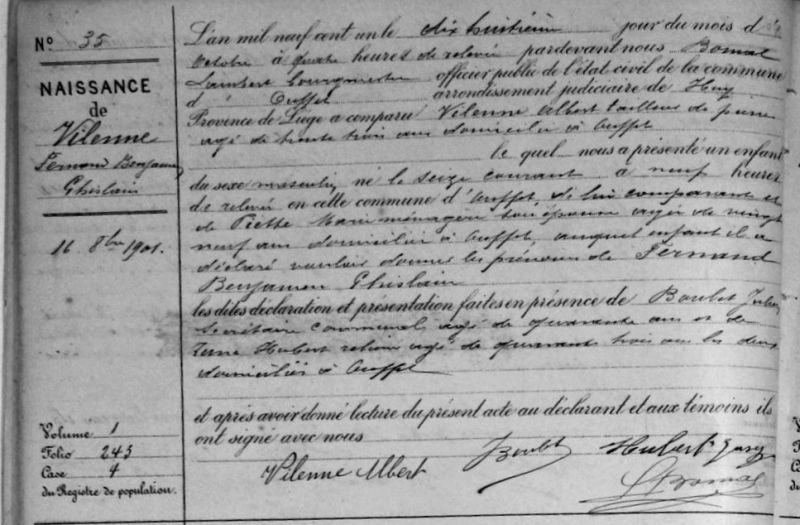 N° 35
NAISSANCE
de
Vilenne
Fernand Benjamin
Ghislain
16 8bre 1901.
Volume 1
Folio 243
Case 4
du Registre de population.
L'an mil neuf cent un le dix huitième jour du mois d'
octobre à quatre heures de relevée pardevant nous Bomal
Lambert bourgmestre officier public de l'état civil de la commune
d' Ouffet arrondissement judiciaire de Huy
Province de Liège a comparu Vilenne Albert tailleur de pierre
agé de trente trois ans domicilié à Ouffet
le quel nous a présenté un enfant
du sexe masculin né le seize courant à neuf heures
de relevée en cette commune d'Ouffet, de lui comparant et
de Piette Marie ménagère son épouse agée de vingt
neuf ans domiciliée à Ouffet, auquel enfant il a
déclaré vouloir donner les prénoms de Fernand
Benjamin Ghislain
les dites déclaration et présentation faites en présence de Boulet
secrétaire communal agé de quarante ans et de
Hubert agé de quarante trois ans les deux
domiciliés à Ouffet
et après avoir donné lecture du présent acte au déclarant et aux témoins ils
ont signé avec nous
Vilenne Albert Boulet Hubert
L Bomal